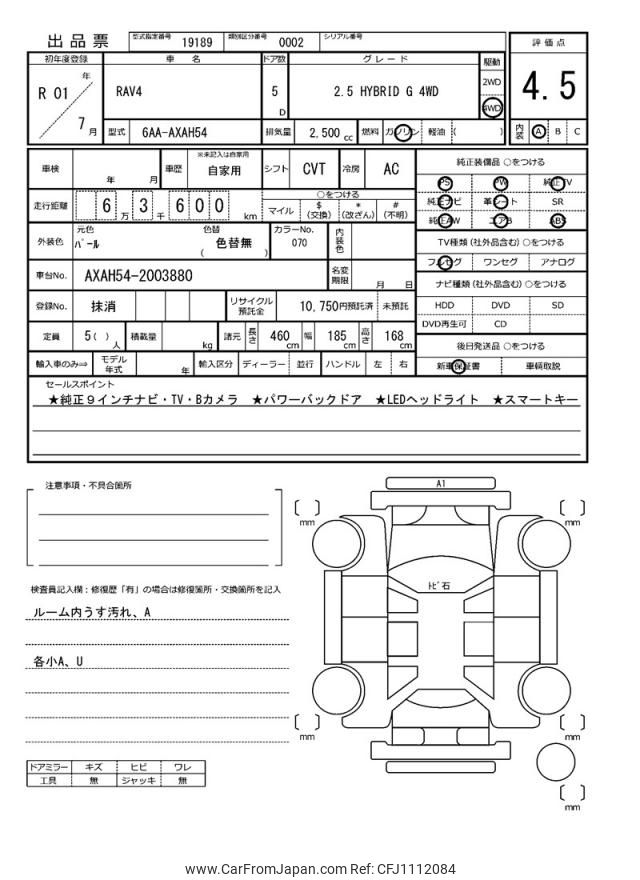 出品票 型式指定番号 19189 類別区分番号 0002 シリアル番号
評価点
4.5
内装 A B C
初年度登録 車名 ドア数 グレード 駆動
R 01 年 7 月 RAV4 5 D 2.5 HYBRID G 4WD 2WD 4WD
型式 6AA-AXAH54 排気量 2,500 cc 燃料 ガソリン 軽油 ( )
車検 年 月 車歴 ※未記入は自家用 自家用 シフト CVT 冷房 AC
走行距離 6 万 3 千 6 0 0 km ○をつける
マイル $ (交換) * (改ざん) # (不明)
外装色 元色 パール 色替 色替無 ( ) カラーNo. 070 内装色
車台No. AXAH54-2003880 名変期限 月 日
登録No. 抹消 リサイクル預託金 10,750円預託済 未預託
定員 5( ) 人 積載量 kg 諸元 長さ 460 cm 幅 185 cm 高さ 168 cm
輸入車のみ⇒ モデル年式 年 輸入区分 ディーラー 並行 ハンドル 左 右
純正装備品 ○をつける
PS PW 純正TV
純正ナビ 革シート SR
純正AW エアB ABS
TV種類 (社外品含む) ○をつける
フルセグ ワンセグ アナログ
ナビ種類 (社外品含む) ○をつける
HDD DVD SD
DVD再生可 CD
後日発送品 ○をつける
新車保証書 車輌取説
セールスポイント
★純正9インチナビ・TV・Bカメラ ★パワーバックドア ★LEDヘッドライト ★スマートキー
注意事項・不具合箇所
検査員記入欄：修復歴「有」の場合は修復箇所・交換箇所を記入
ルーム内うす汚れ、A
各小A、U
ドアミラー キズ ヒビ ワレ
工具 無 ジャッキ 無
A1
トビ石
[ ] mm
[ ] mm
[ ] mm
[ ] mm
[ ] mm
www.CarFromJapan.com Ref: CFJ1112084